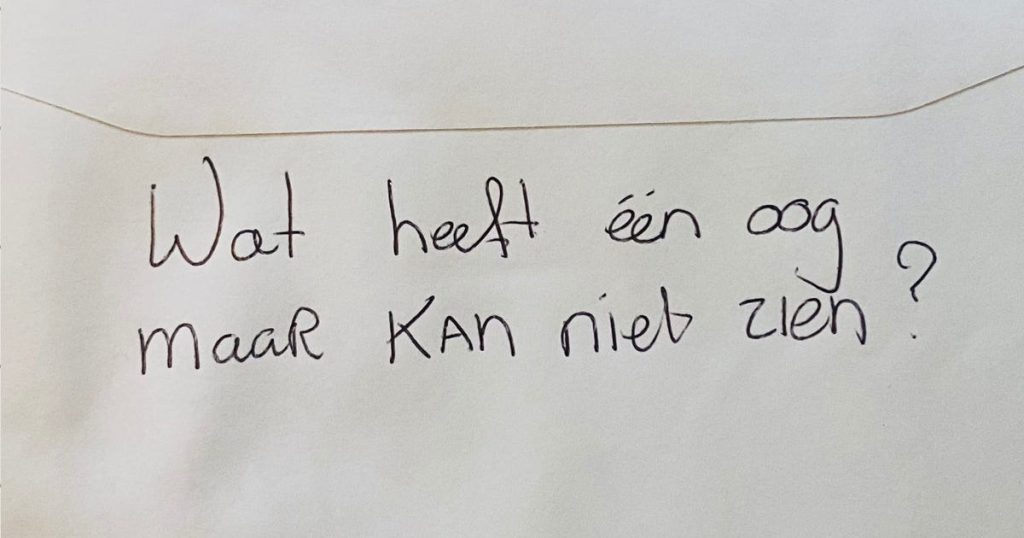 Wat heeft één oog
maar kan niet zien?